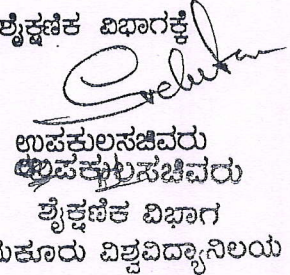 ಶೈಕ್ಷಣಿಕ ವಿಭಾಗಕ್ಕೆ
ಉಪಕುಲಸಚಿವರು
ಉಪಕುಲಸಚಿವರು
ಶೈಕ್ಷಣಿಕ ವಿಭಾಗ
ಮಕೂರು ವಿಶ್ವವಿದ್ಯಾನಿಲಯ